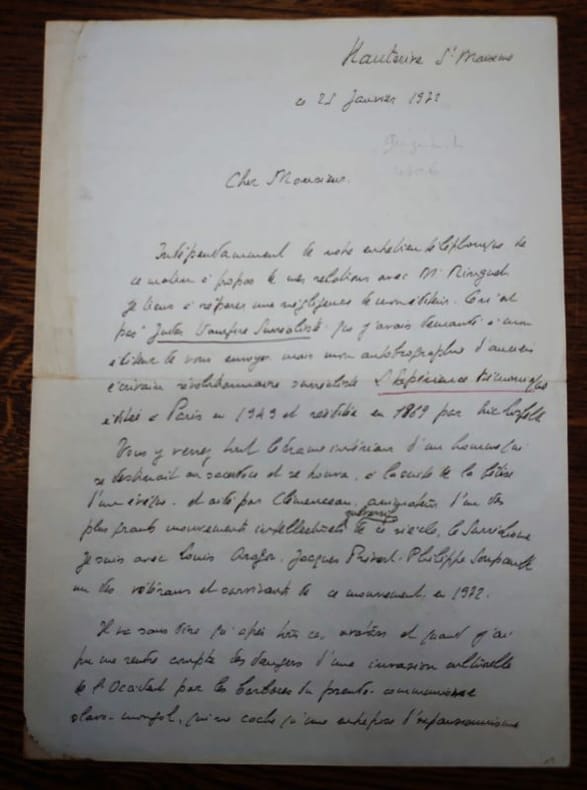 Hauterive St Maxime
ce 25 Janvier 1972
Cher Monsieur.
Indépendamment de notre entretien téléphonique de
ce matin à propos de mes relations avec Mr Minguet
je tiens à réparer une négligence de mon éditeur. Ce n'est
pas Vampire Surréaliste que j'avais demandé à mon
éditeur de vous envoyer mais mon autobiographie d'ancien
écrivain révolutionnaire surréaliste L'Expérience Démoniaque
éditée à Paris en 1949 et rééditée en 1869 par
Vous y verrez tout le drame intérieur d'un homme qui
se destinait au sacerdoce et se trouva, à la suite de la bêtise
d'un évêque. et aidé par Clémenceau, d'un des
plus grands mouvements intellectuels de ce siècle, le Surréalisme
Je suis avec Louis Aragon. Jacques Prévert. Philippe Soupault
un des vétérans et survivants de ce mouvement en 1972.
Il va sans dire qu'après tous ces avatars et quand j'ai
pu me rendre compte des dangers d'une invasion culturelle
de l'Occident par les barbares du pseudo-communisme
slavo-mongol, qui ne cache qu'une entreprise d'expansionnisme